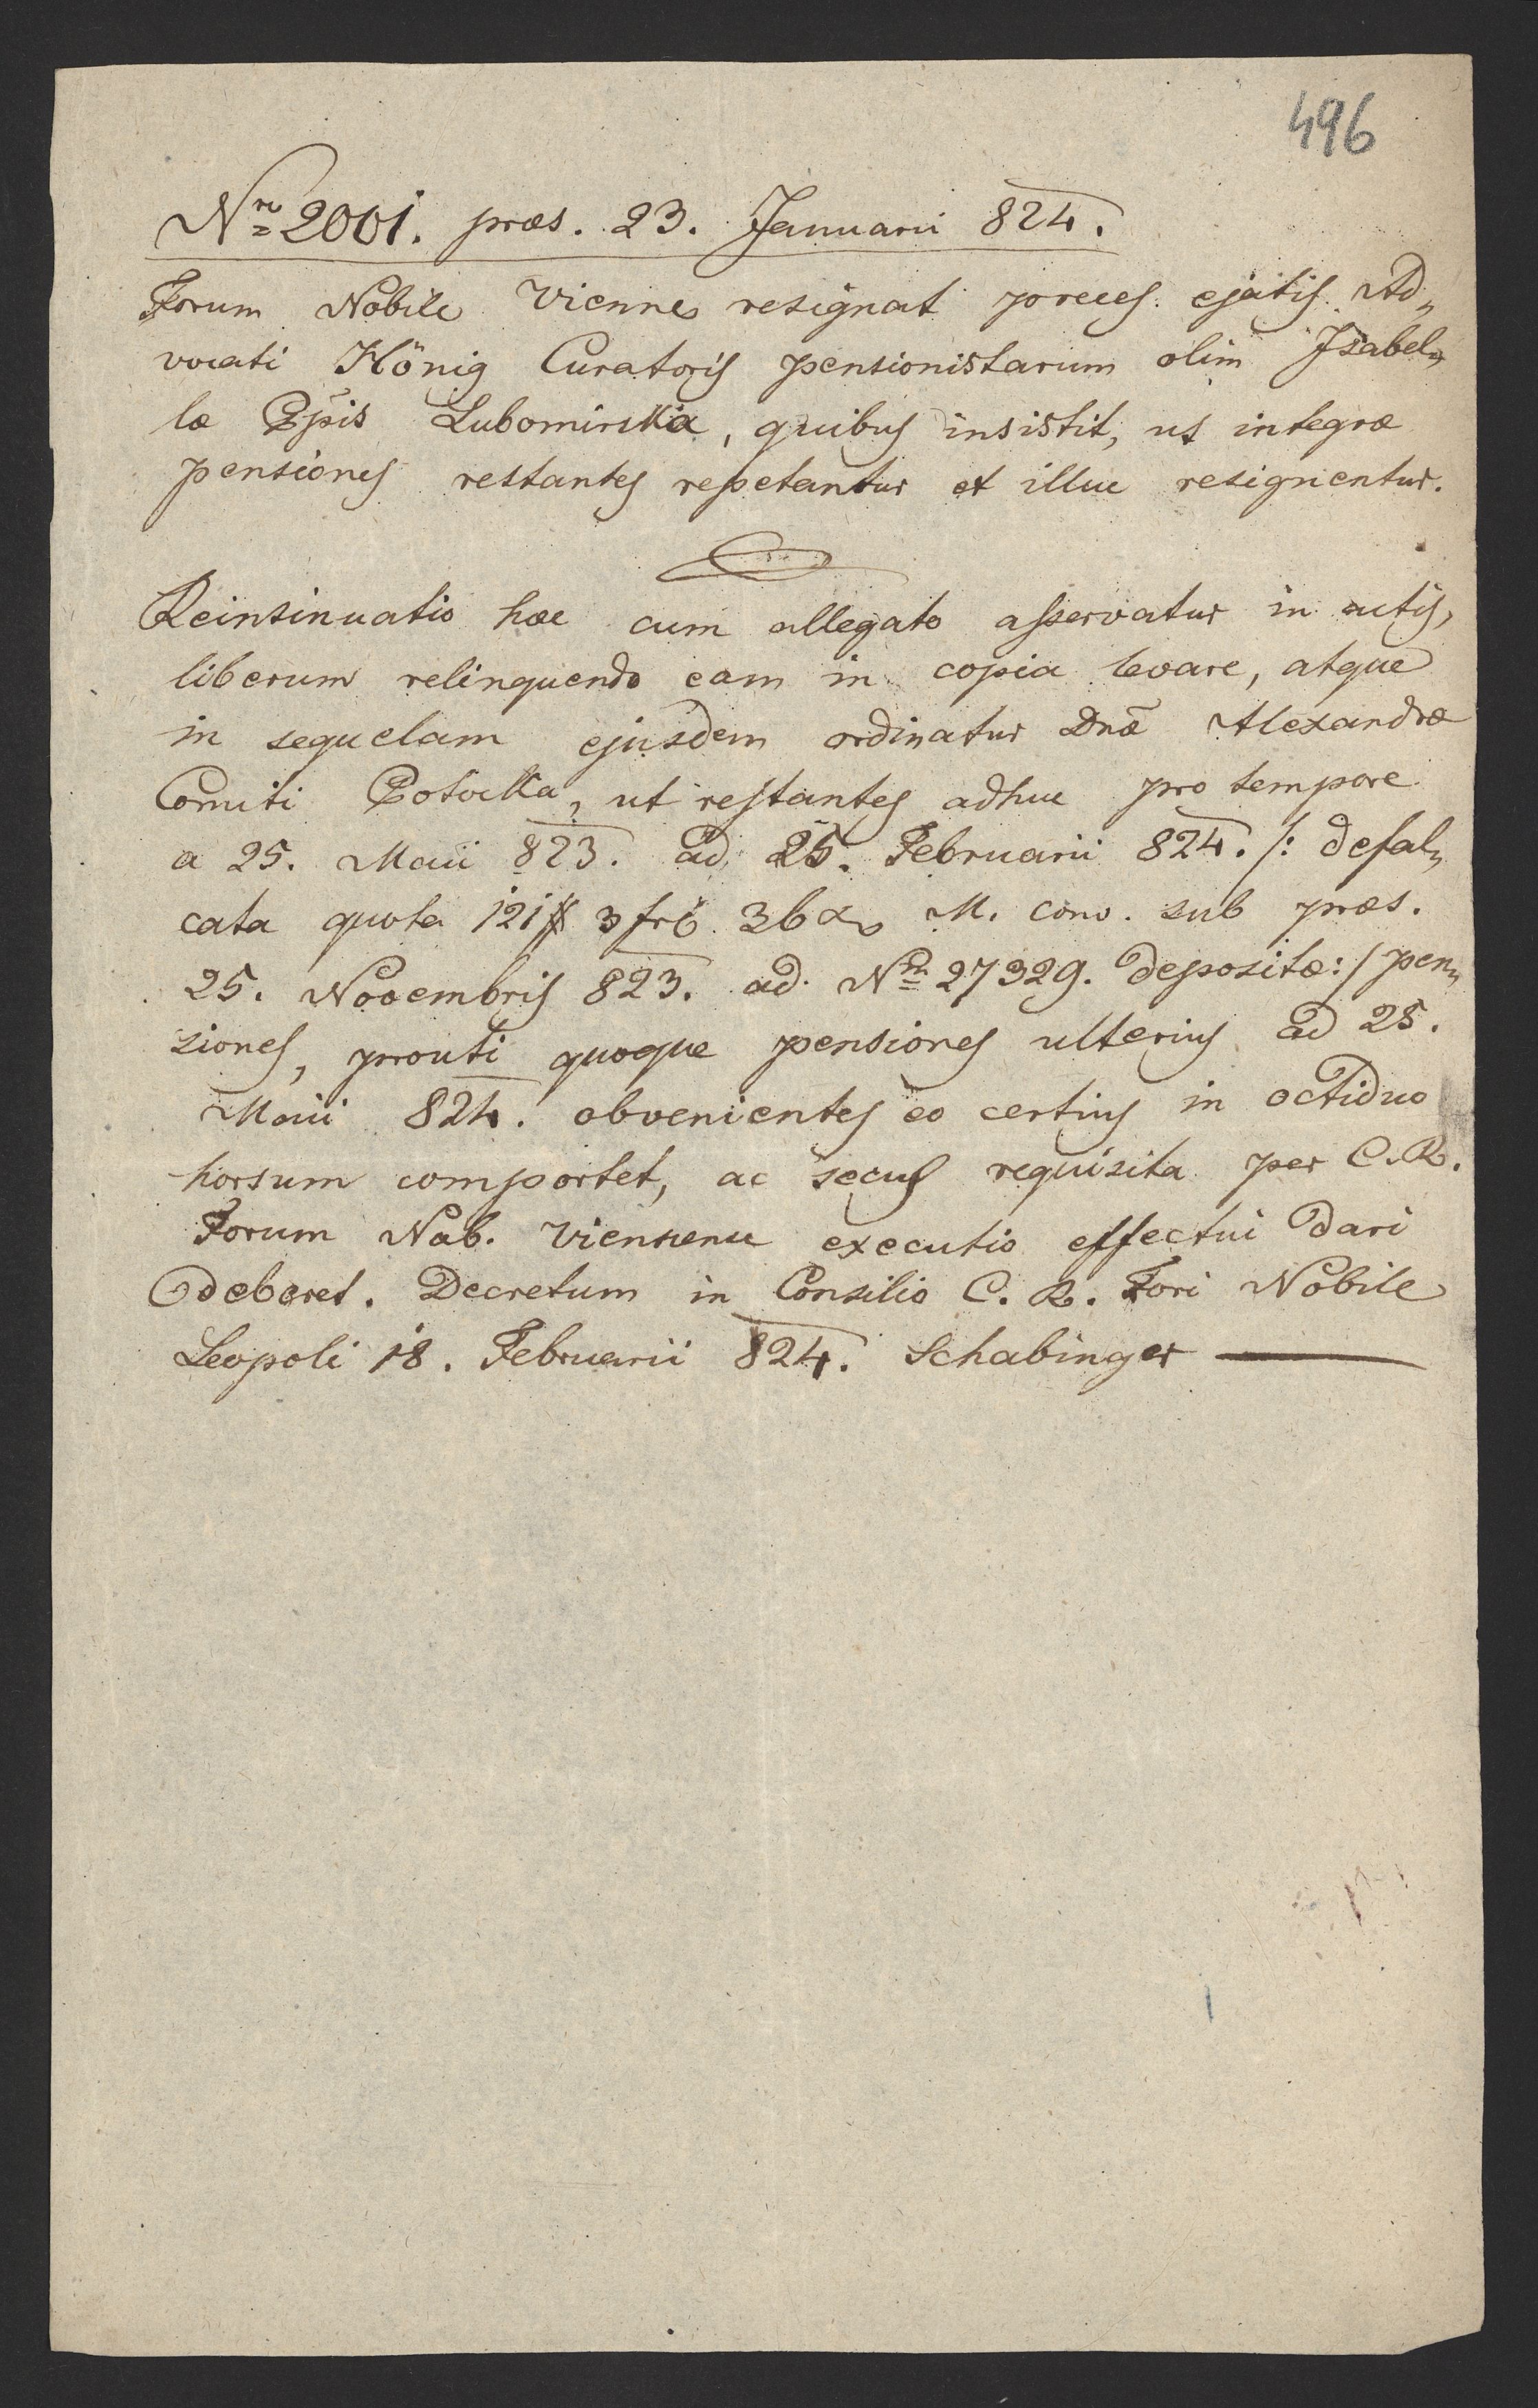 496
Nro 2001. præs. 23. Januarii 824.
Forum Nobile Vienne resignat preces ejatis Ad„
vocati König Curatoris pensionistarum olim Isabel„
læ Ppis Lubomirska, quibus insistit, ut integræ
pensiones restantes repetantur et illuc resignentur.
Reinsinuatio hæc cum allegato asservatur in actis,
liberum relinquendo eam in copia levare, atque
in sequelam ejusdem ordinatur Dnæ Alexandræ
Comiti Potocka, ut restantes adhuc pro tempore
a 25. Maii 823. ad 25. Februarii 824. /: defal„
cata quota 121 # 3 fr 36 xr M. conv. sub præs.
25. Novembris 823. ad Nrum 27329. depositæ :/ pen„
siones, prouti quoque pensiones ulterius ad 25.
Maii 824. obvenientes eo certius in octiduo
horsum comportet, ac secus requisita per C. R.
Forum Nob. Viennense executio effectui dari
deberet. Decretum in Consilio C. R. Fori Nobile
Leopoli 18. Februarii 824. Schabinger